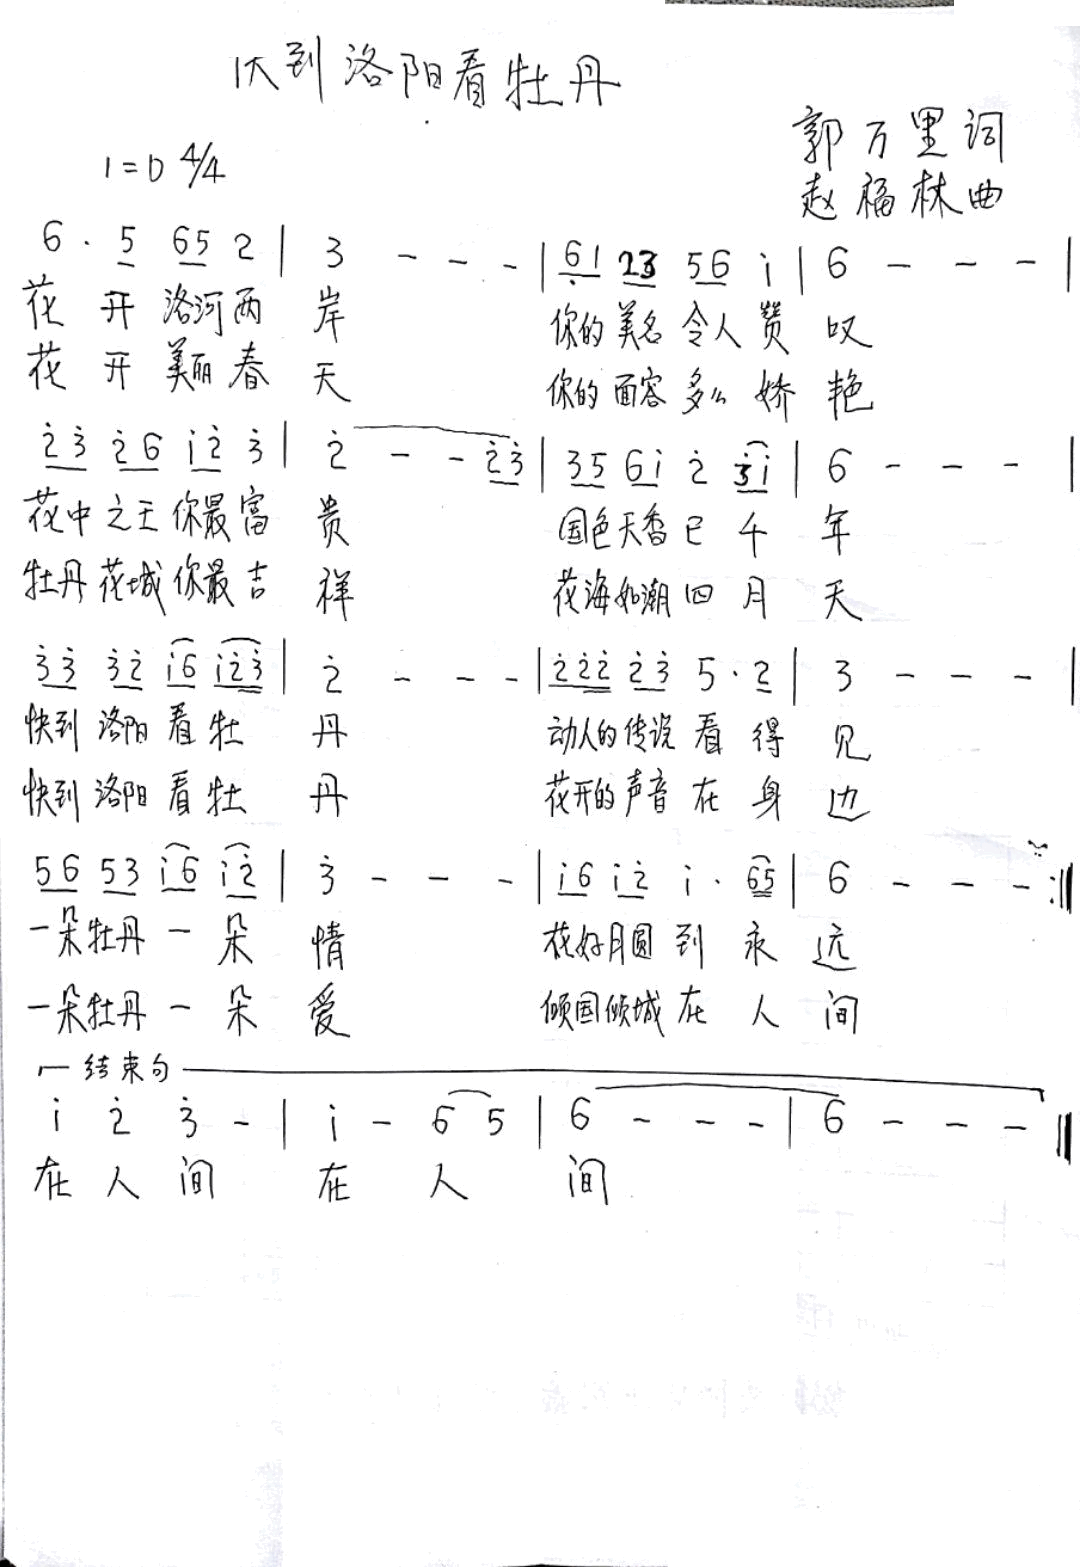 快到洛阳看牡丹
郭万里词
1=D 4/4
赵福林曲
6 · 5 65 2 | 3 - - - | 6̣1 23 56 i | 6 - - - |
花开洛河两岸 你的美名令人赞叹
花开美丽春天 你的面容多么娇艳
2̇3̇ 2̇6 i2̇ 3̇ | 2̇ - - 2̇3̇ | 35 6i 2̇ 3̇i | 6 - - - |
花中之王你最富贵 国色天香已千年
牡丹花城你最吉祥 花海如潮四月天
3̇3̇ 3̇2̇ i6 i2̇3̇ | 2̇ - - - | 2̇2̇2̇ 2̇3̇ 5 · 2̇ | 3 - - - |
快到洛阳看牡丹 动人的传说看得见
快到洛阳看牡丹 花开的声音在身边
56 53 i6 i2̇ | 3̇ - - - | i6 i2̇ i · 65 | 6 - - - :||
一朵牡丹一朵情 花好月圆到永远
一朵牡丹一朵爱 倾国倾城在人间
结束句
i 2̇ 3̇ - | i - 6 5 | 6 - - - | 6 - - - ||
在人间 在人间